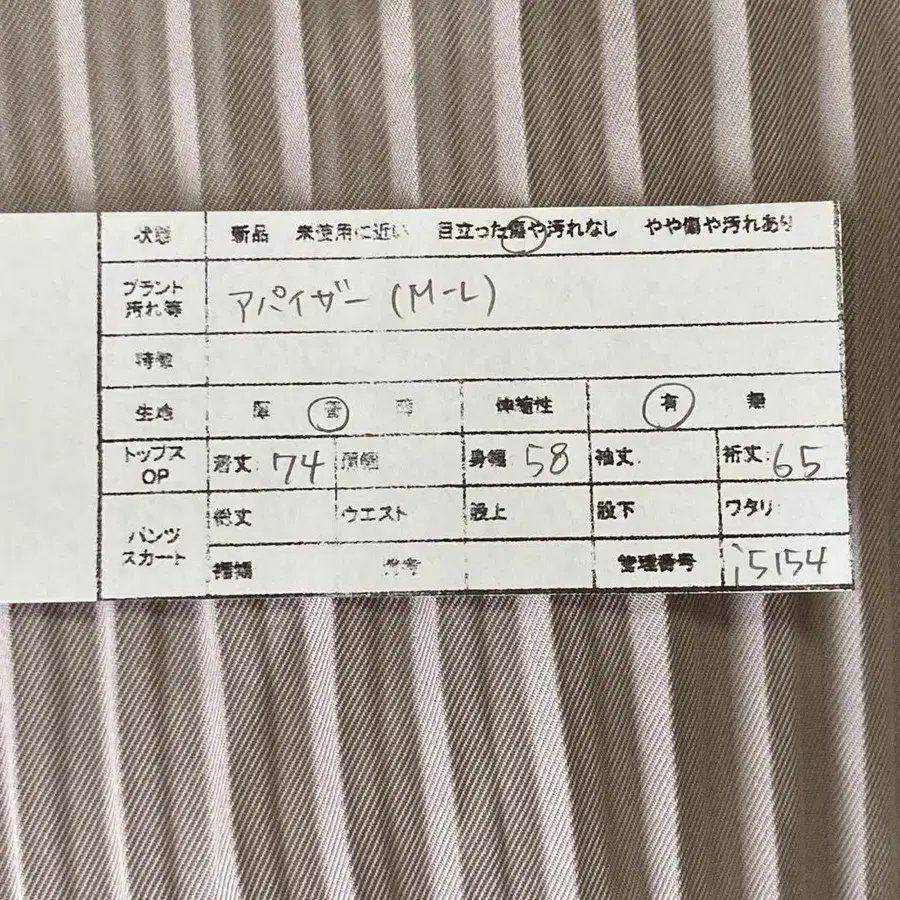 状態 新品 未使用に近い 目立った傷や汚れなし やや傷や汚れあり
ブランド
汚れ等
アパイザー (M-L)
特徴
生地 厚 普 薄 伸縮性 有 無
トップス
OP
着丈: 74 肩幅 身幅 58 袖丈. 裄丈: 65
パンツ
スカート
総丈 ウエスト 股上 股下 ワタリ
裾幅 備考 管理番号 i5154